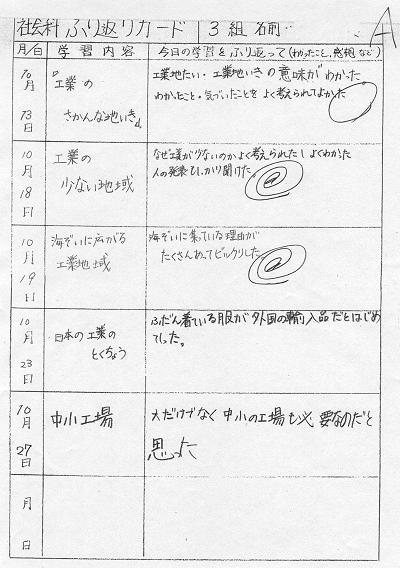 社会科 ふり返りカード 3組 名前 A
月/日 学習内容 今日の学習をふり返って(わかったこと,感想など)
10月13日
『工業の
さかんな地いき』
工業地たい・工業地いきの意味がわかった。
わかったこと・気づいたことをよく考えられてよかった
10月18日
工業の
少ない地域
なぜ工業が少ないのかよく考えられたしよくわかった
人の発表もしっかり聞けた。
10月19日
海ぞいに広がる
工業地域
海ぞいに集っている理由が
たくさんあってビックリした。
10月23日
日本の工業の
とくちょう
ふだん着ている服が外国の輸入品だとはじめ
てしった。
10月27日
中小工場
大だけでなく中小の工場も必要なのだと
思った
月
日